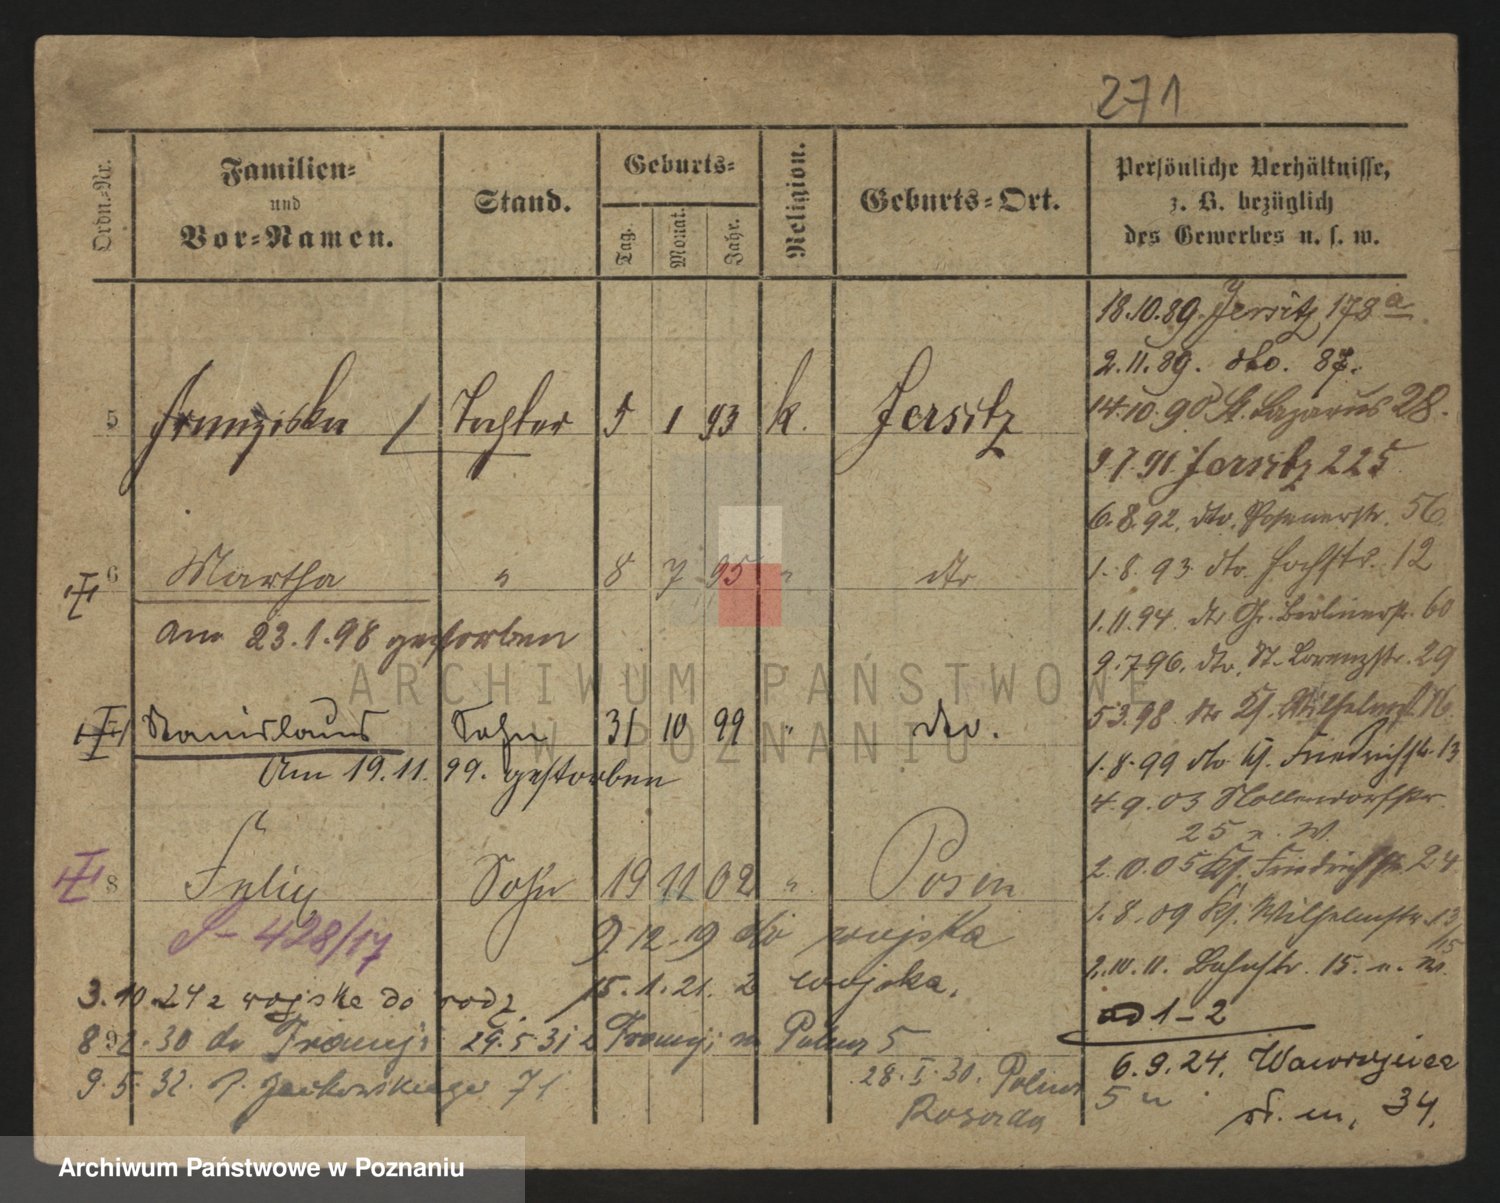 271
Ordn.-Nr.
Familien-
und
Vor-Namen.
Stand.
Geburts-
Tag.
Monat.
Jahr.
Religion.
Geburts-Ort.
Persönliche Verhältnisse,
z. B. bezüglich
des Gewerbes u. s. w.
18.10.89. Jersitz 178 a
2.11.89. dto. 87.
5 Franziska / Tochter 5 1 93 k. Jersitz
14.10.90 St. Lazarus 28.
9.7.91. Jersitz 225
6.8.92. dto. Posenerstr. 56
1.8.93 dto. Hochstr. 12
6 Martha " 8 7 95 " dto
am 23.1.98 gestorben
1.11.94. dto Gr. Berlinerstr. 60
9.7.96. dto. St. Lorenzstr. 29
ARCHIWUM PAŃSTWOWE
W POZNANIU
5.3.98 dto Wilhelmstr 16
Stanislaus Sohn 31 10 99 " dto.
am 19.11.99. gestorben
1.8.99 dto Kl. Friedrichstr. 13
4.9.03 Nollendorfstr.
25 n. W.
8 Felix Sohn 19 11 02 " Posen
2.10.05 Kl. Friedrichstr. 24
1.8.09 Kl. Wilhelmstr. 13/15
S- 428/17
9.12.19 do wojska
2.10.11. Bahnstr. 15. n. W.
3.10.24 z wojska do rodz.
15.1.21. z wojska.
ad 1-2
30 do Francji 29.5.31 z Francji n Polna 5
6.9.24. Wawrzyńca
34.
9.5.32. 71
28.I.30. Polna
5
Archiwum Państwowe w Poznaniu